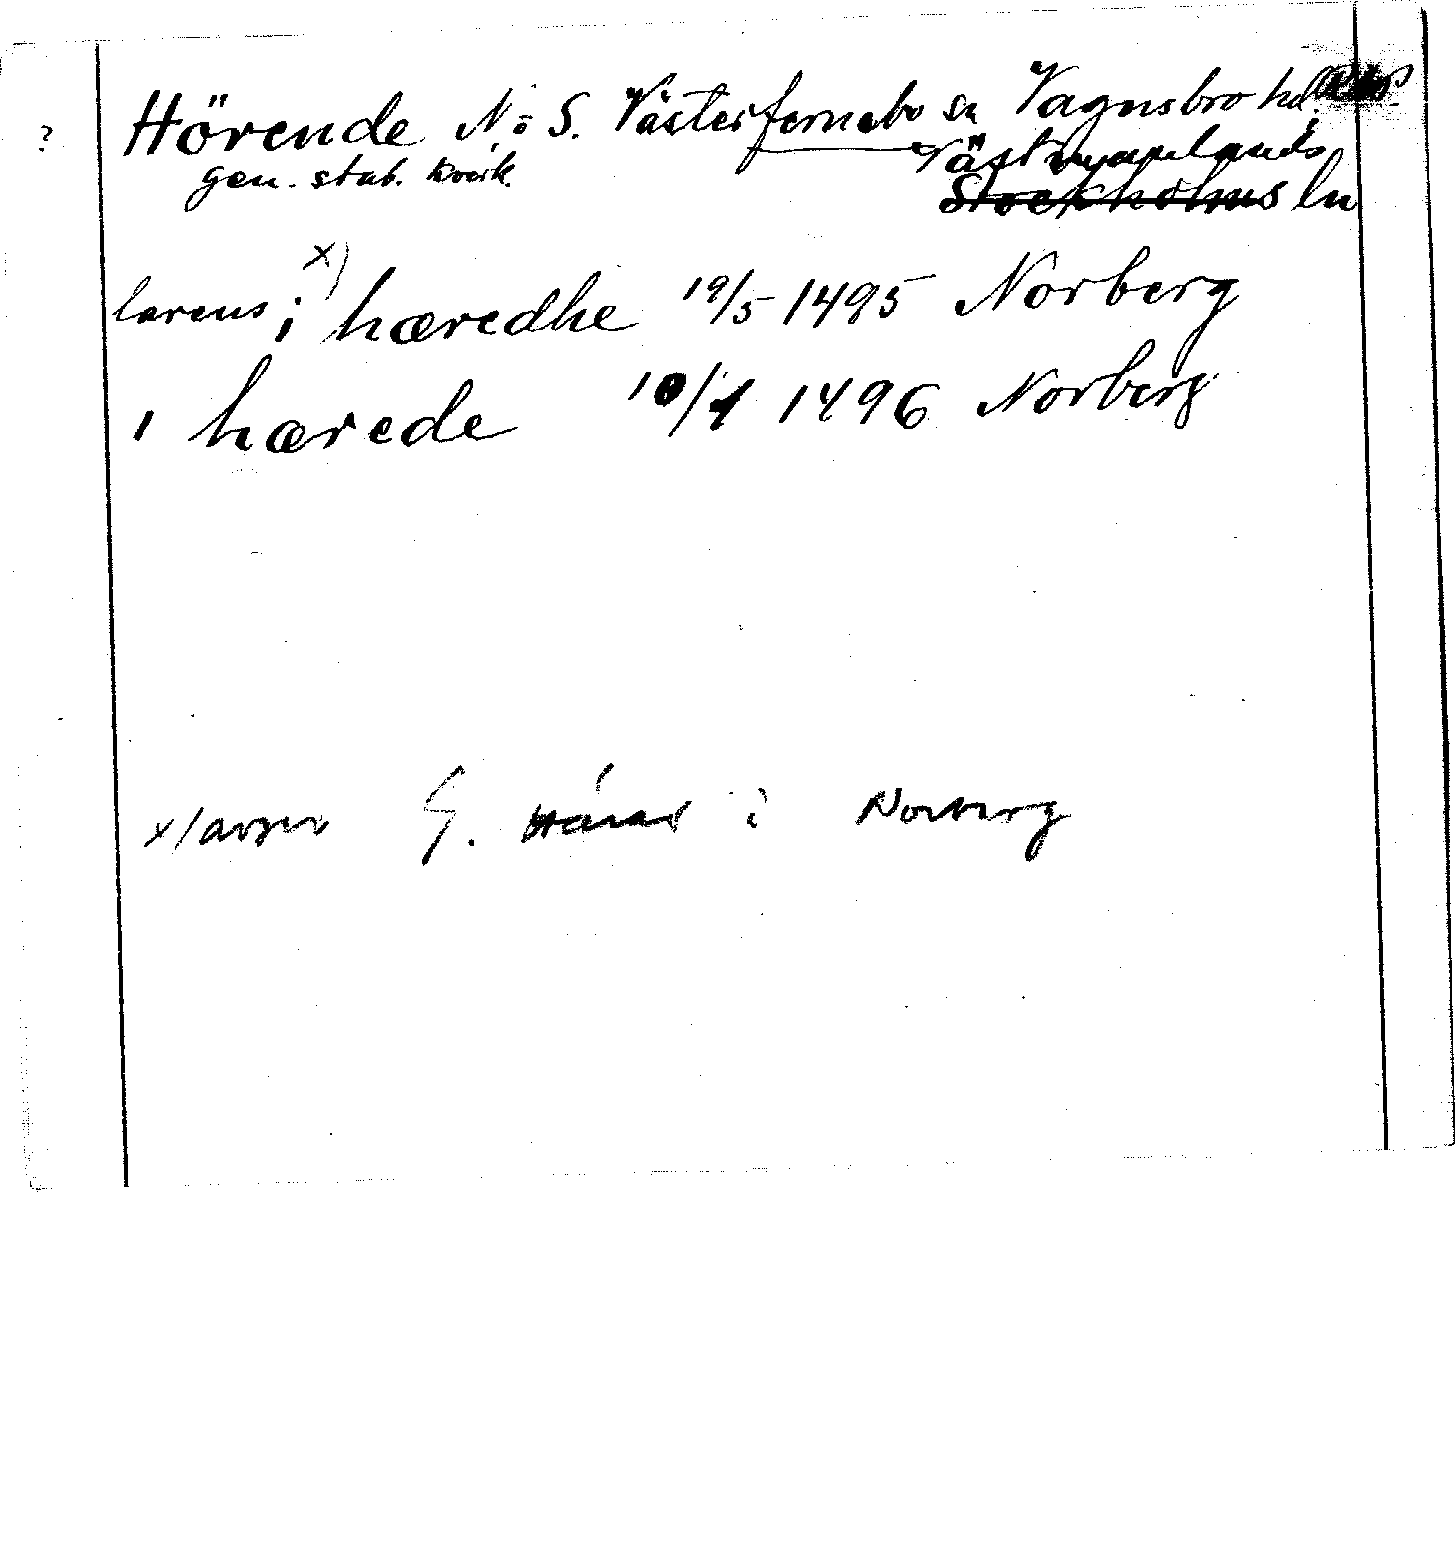 ? Hörende N. o S. Västerfernebo sn Vagnsbro hd
gen. stab. Västmanlands
Stockholms ln
x)
larens i hæredhe 19/5 1495 Norberg
i hærede 10/1 1496 Norberg
x/ avser G. Härad i Norberg